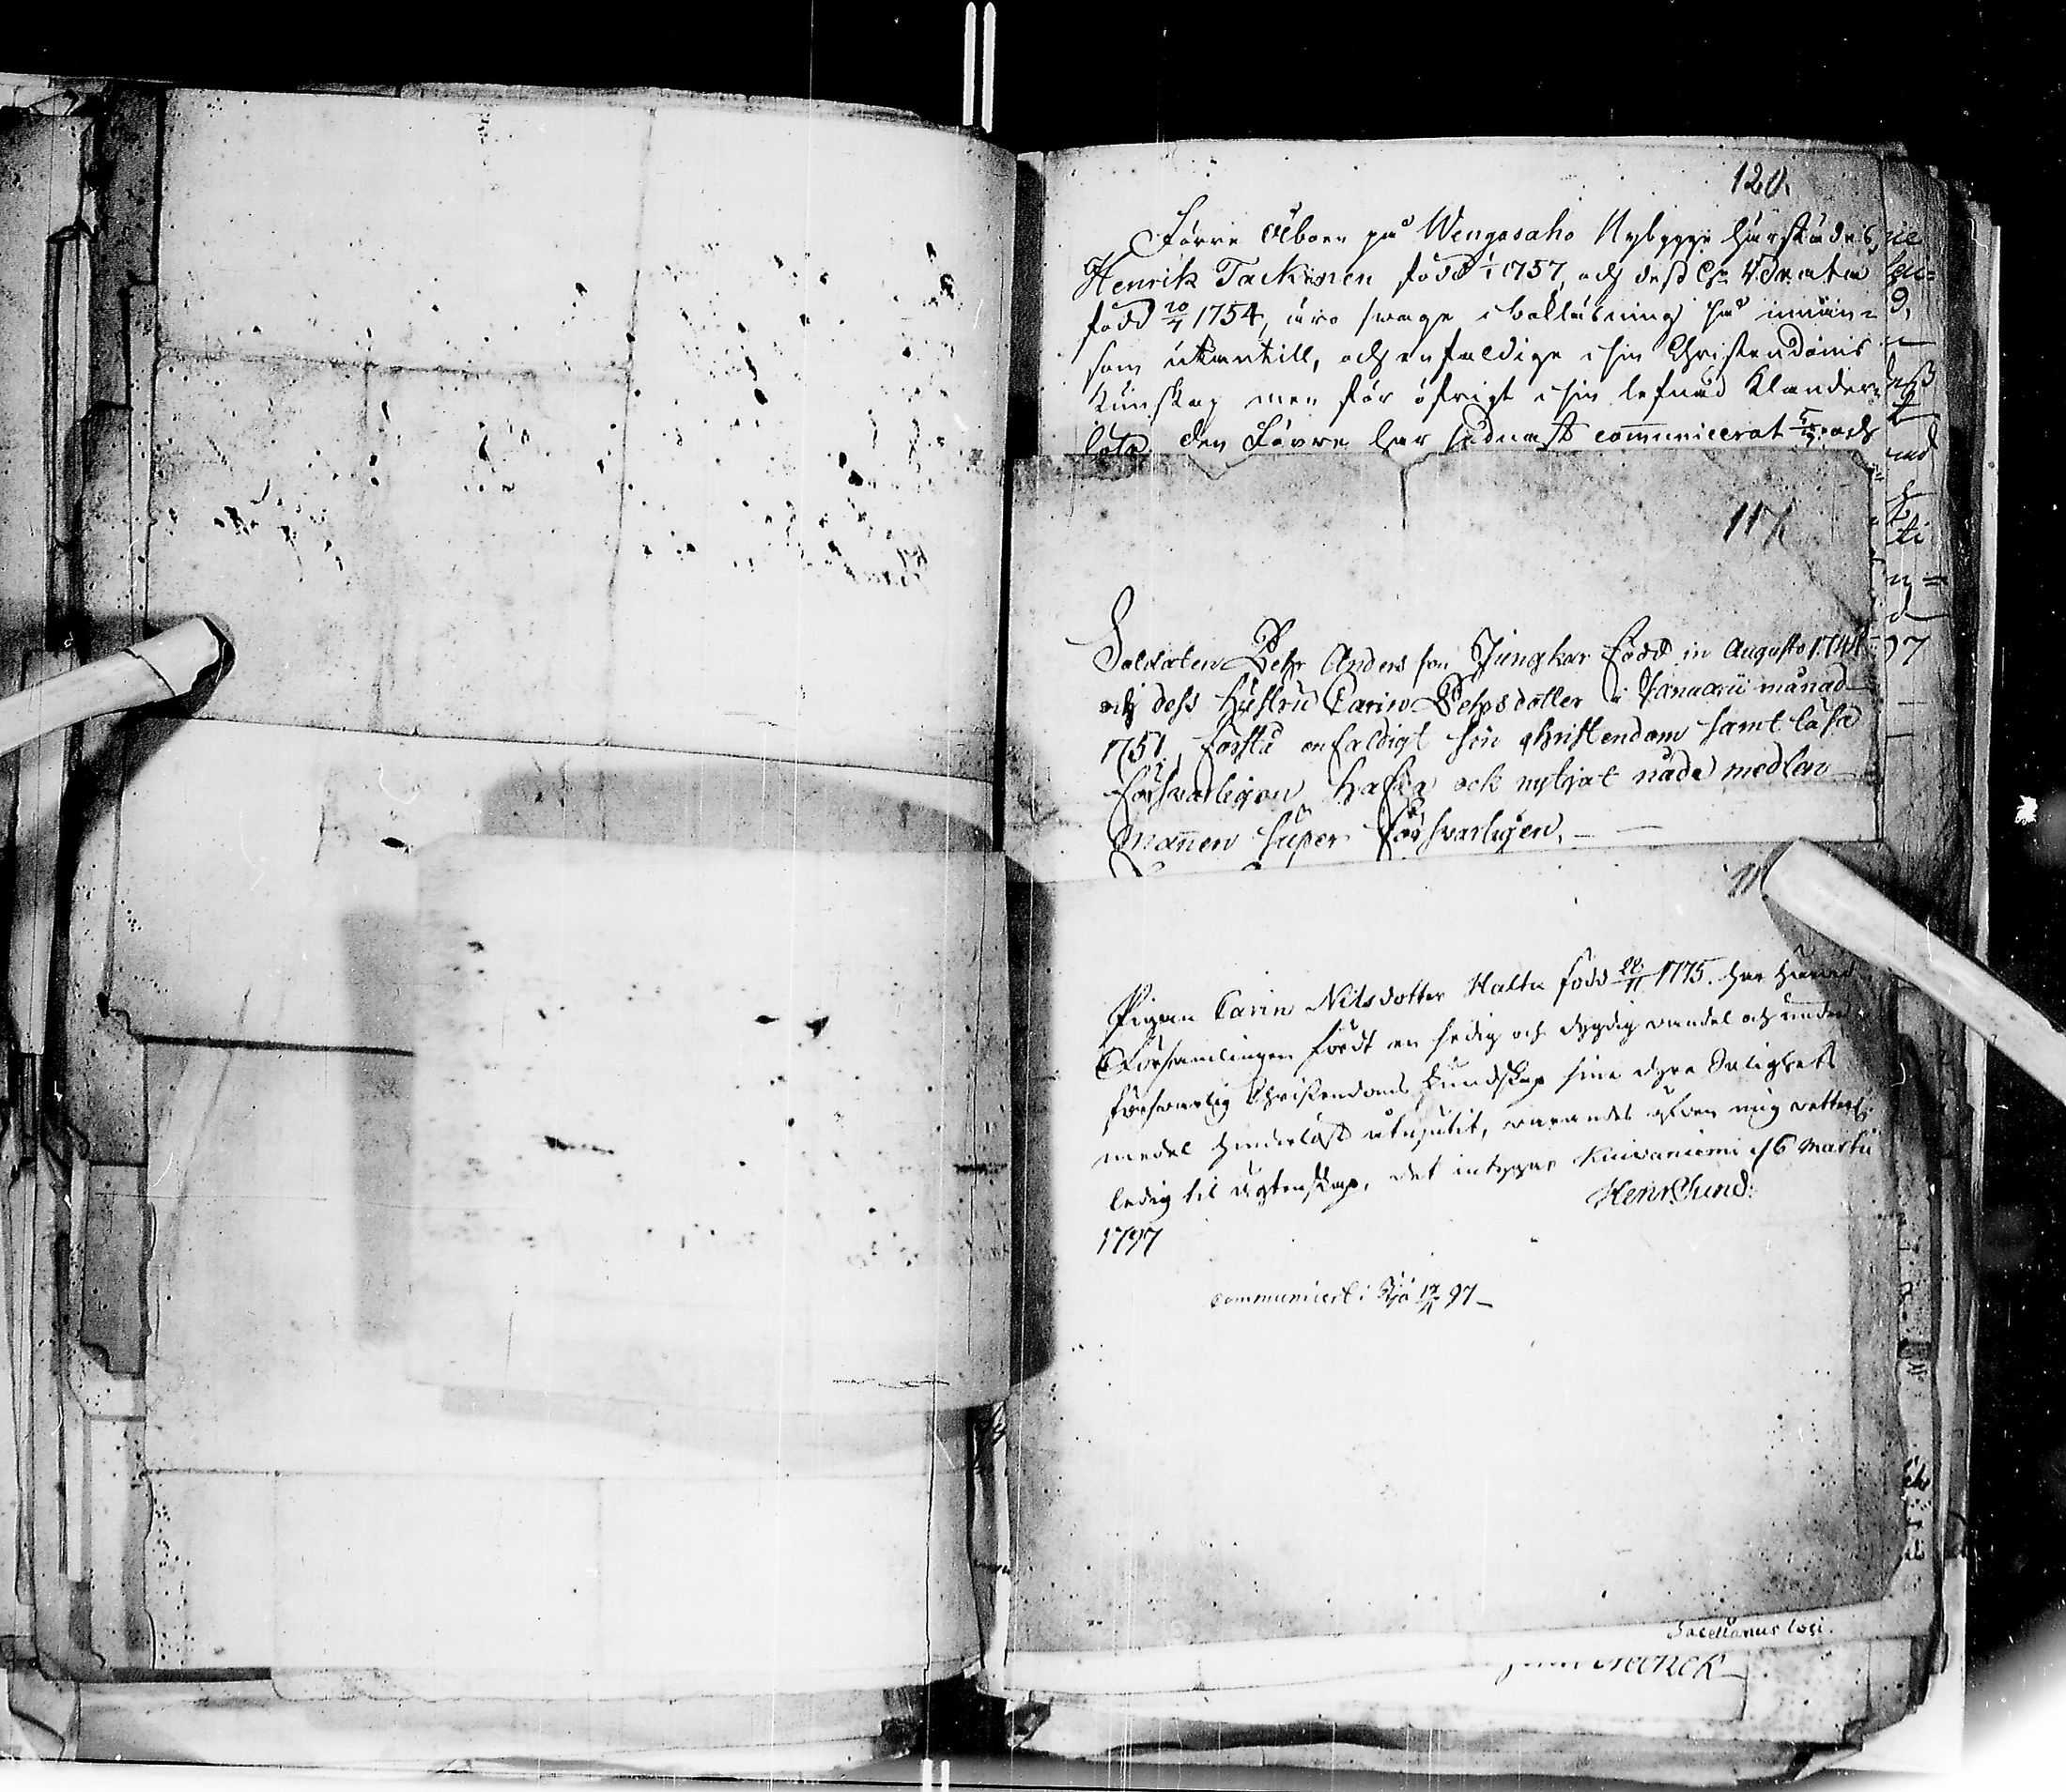 120.
Förre Åboen på Wengasaho Nybygge härstädes,
Henrik Tackinen född 1/1 1757, och dess h:u Wdr:ata
född 20/4 1754, äro swage i bokläsning så innan=
som utantill, och enfaldige i sin Christendoms
Kunskap men för öfrigt i sin lefnad Klander=
löse, den Förre har sidnast communicerat och
117
Soldaten Pehr Anders son Jungkar Född in Augusto 174
och dess hustru Carin Pehrsdotter i Januarii månad
1751, Förstå enfaldigt sin christendom samt läsa
försvarligen, hafva ock nytjat nåde medlen
Mannen super försvarligen.
Pigan Carin Nilsdotter Halta född 22/11 1775. har
Församlingen fördt en sedig och dygdig vandel och under
försvarlig Christendoms Kundskap sine dyra Salighets
medel hinderlöst utnjutit, varandes äfven mig vetterl:
ledig til ägtenskap, det intygar Kuivaniemi d 6 Martii
1797
Henr Sund:
communicert i Ijå 17/ 97
Sacellanus loci.